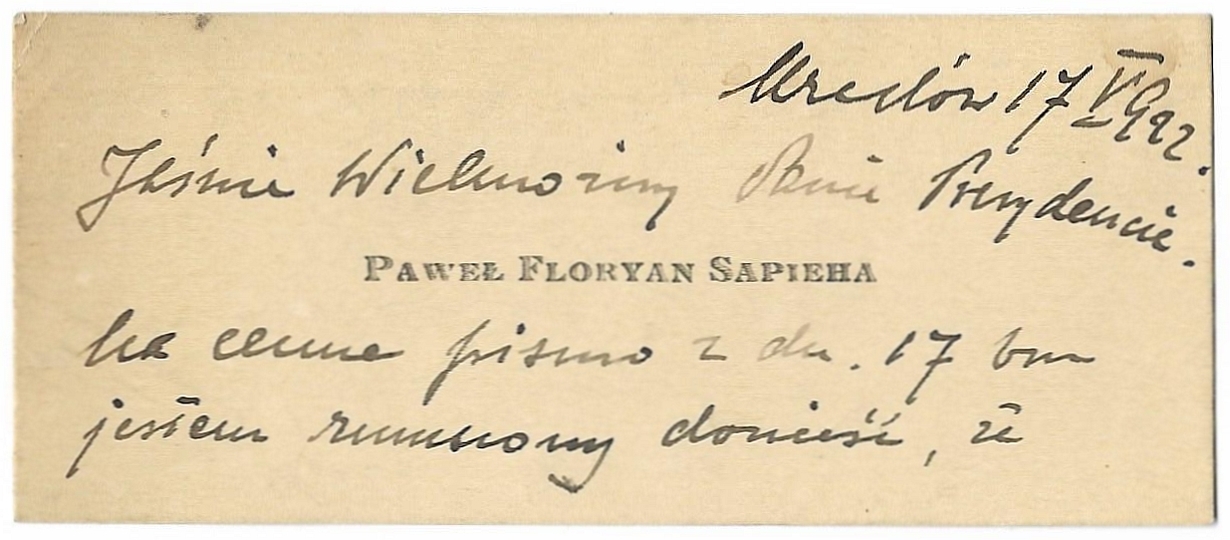 17 V 922.
Jaśnie Wielmożny Panie Prezydencie.
PAWEŁ FLORYAN SAPIEHA
Na cenne pismo z dn. 17 bm
jestem zmuszony donieść, że